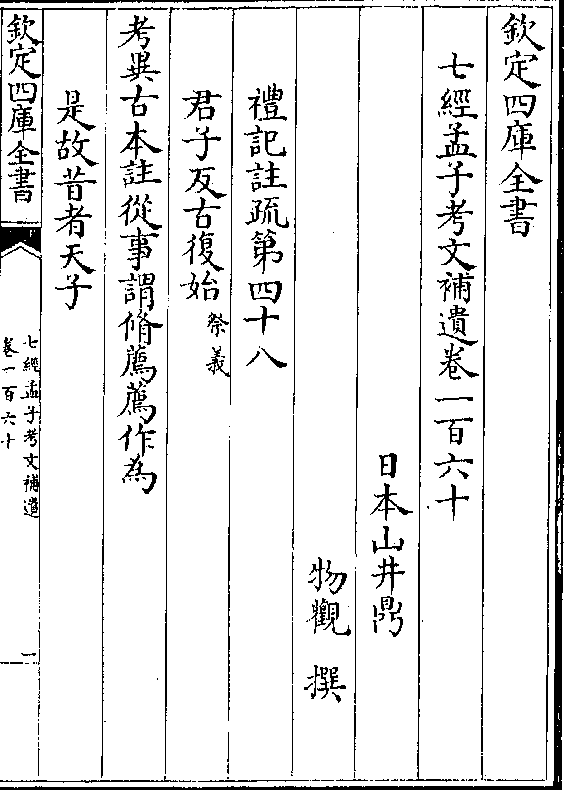 欽定四庫全書
七經孟子考文補遺卷一百六十
日本山井鼎
物觀 撰
禮記註疏第四十八
君子反古復始祭義
考異古本註從事謂脩薦薦作為
是故昔者天子
欽定四庫全書
七經孟子考文補遺
卷一百六十
一